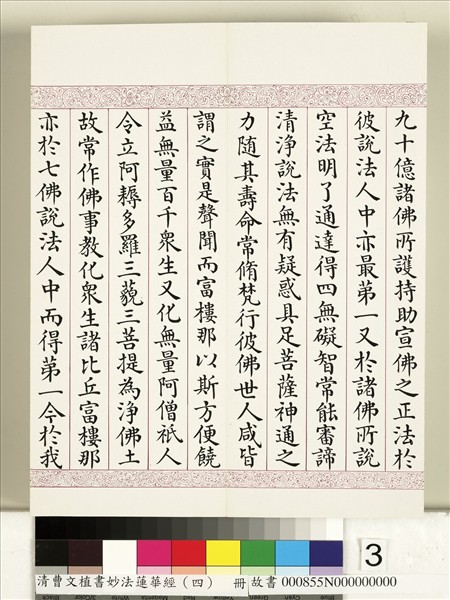 九十億諸佛所護持助宣佛之正法於
彼說法人中亦最第一又於諸佛所說
空法明了通達得四無礙智常能審諦
清淨說法無有疑惑具足菩薩神通之
力隨其壽命常脩梵行彼佛世人咸皆
謂之實是聲聞而富樓那以斯方便饒
益無量百千眾生又化無量阿僧祇人
令立阿耨多羅三藐三菩提為淨佛土
故常作佛事教化眾生諸比丘富樓那
亦於七佛說法人中而得第一今於我
3
清曹文植書妙法蓮華經（四） 冊 故書 000855N000000000